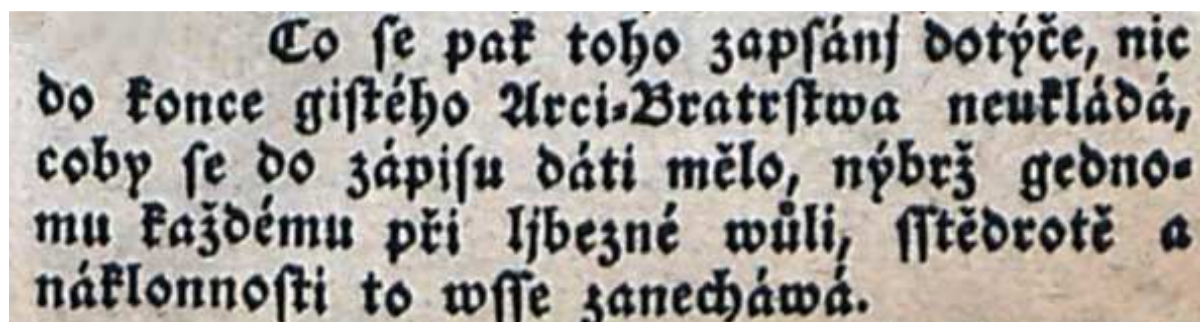 Co ſe pak toho zapſánj dotýče, nic
do konce giſtého Arci-Bratrſtwa neukládá,
coby ſe do zápiſu dáti mělo, nýbrž gedno-
mu každému při ljbezné wůli, ſſtědrotě a
náklonnoſti to wſſe zanecháwá.